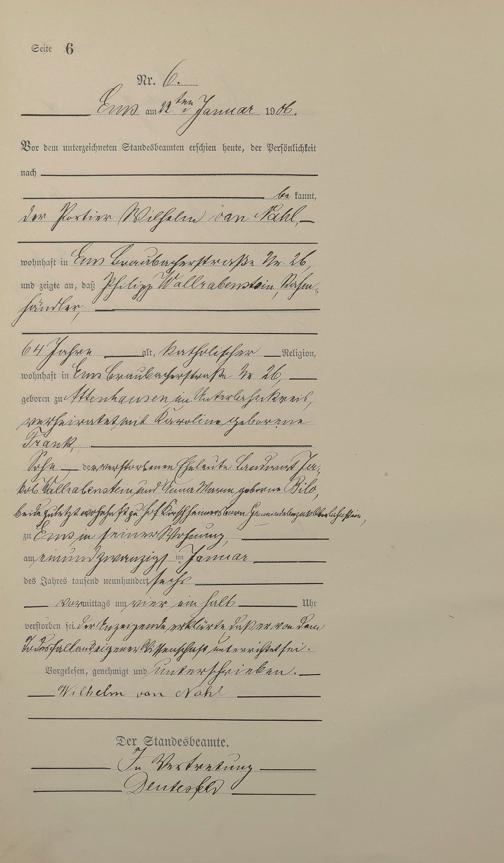 Seite 6
Nr. 6.
Ems am 22ten Januar 1906.
Vor dem unterzeichneten Standesbeamten erschien heute, der Persönlichkeit
nach
be kannt,
der Portier Wilhelm van Nahl,
wohnhaft in Ems Braubacherstraße Nr 26,
und zeigte an, daß Philipp Wallrabenstein,
händler,
64 Jahre alt, katholischer Religion,
wohnhaft in Ems Braubacherstraße Nr 26,
geboren zu Attenhausen im Unterlahnkreis,
verheiratet mit Karoline geborene
Frank,
Sohn der verstorbenen Eheleute Landwirt Ja-
kob Wallrabenstein und Anna Maria geborne
beide zuletzt wohnhaft zu
zu Ems in seiner Wohnung,
am einundzwanzigsten Januar
des Jahres tausend neunhundert sechs
vormittags um vier ein halb Uhr
verstorben sei. der Anzeigende erklärte daß er von dem
Todesfall aus eigener Wissenschaft unterrichtet sei.
Vorgelesen, genehmigt und unterschrieben.
Wilhelm van Nahl
Der Standesbeamte.
In Vertretung